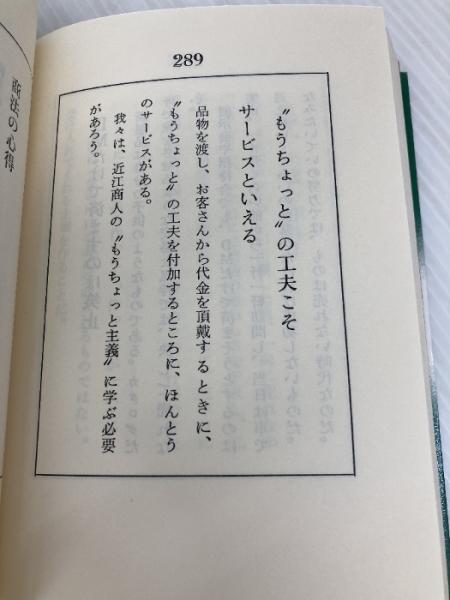 289
〝もうちょっと〟の工夫こそ
サービスといえる
品物を渡し、お客さんから代金を頂戴するときに、
〝もうちょっと〟の工夫を付加するところに、ほんとう
のサービスがある。
我々は、近江商人の〝もうちょっと主義〟に学ぶ必要
があろう。
商法の心得